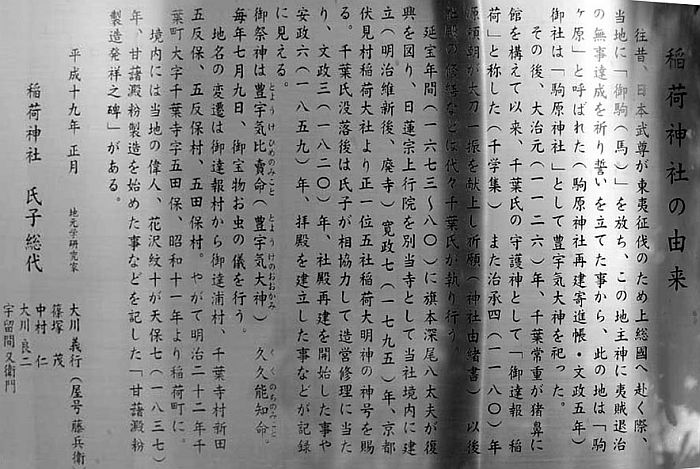 稲荷神社の由来
往昔、日本武尊が東夷征伐のため上総國へ赴く際、
当地に「御駒(馬)」を放ち、この地主神に夷賊退治
の無事達成を祈り誓いを立てた事から、此の地は「駒
ヶ原」と呼ばれた(駒原神社再建寄進帳・文政五年)
御社は「駒原神社」として豊宇気大神を祀った。
その後、大治元(一一二六)年、千葉常重が猪鼻に
館を構えて以来、千葉氏の守護神として「御達報 稲
荷」と称した(千学集) また治承四(一一八〇)年
源頼朝が太刀一振を献上し祈願(神社由緒書) 以後
社殿の修繕などは代々千葉氏が執り行う。
延宝年間(一六七三~八〇)に旗本深尾八太夫が復
興を図り、日蓮宗上行院を別当寺として当社境内に建
立(明治維新後、廃寺) 寛政七(一七九五)年、京都
伏見村稲荷大社より正一位五社稲荷大明神の神号を賜
る。千葉氏没落後は氏子が相協力して造営修理に当た
り、文政三(一八二〇)年、社殿再建を開始した事や
安政六(一八五九)年、拝殿を建立した事などが記録
に見える。
御祭神は豊宇気比賣命(豊宇気大神) 久久能知命。
とようけひめのみこと とようけのおおかみ くくのちのみこと
毎年七月九日、御宝物お虫の儀を行う。
地名の変遷は御達報村から御達浦村、千葉寺村新田
五反保、五反保村、五田保村。やがて明治二十二年千
葉町大字千葉寺字五田保、昭和十一年より稲荷町に。
境内には当地の偉人、花沢紋十が天保七(一八三七)
年、甘藷澱粉製造を始めた事などを記した「甘藷澱粉
製造発祥之碑」がある。
平成十九年 正月
地元学研究家 大川義行(屋号 藤兵衛
稲荷神社 氏子総代
篠塚 茂
中村 仁
大川良二
宇留間又衛門